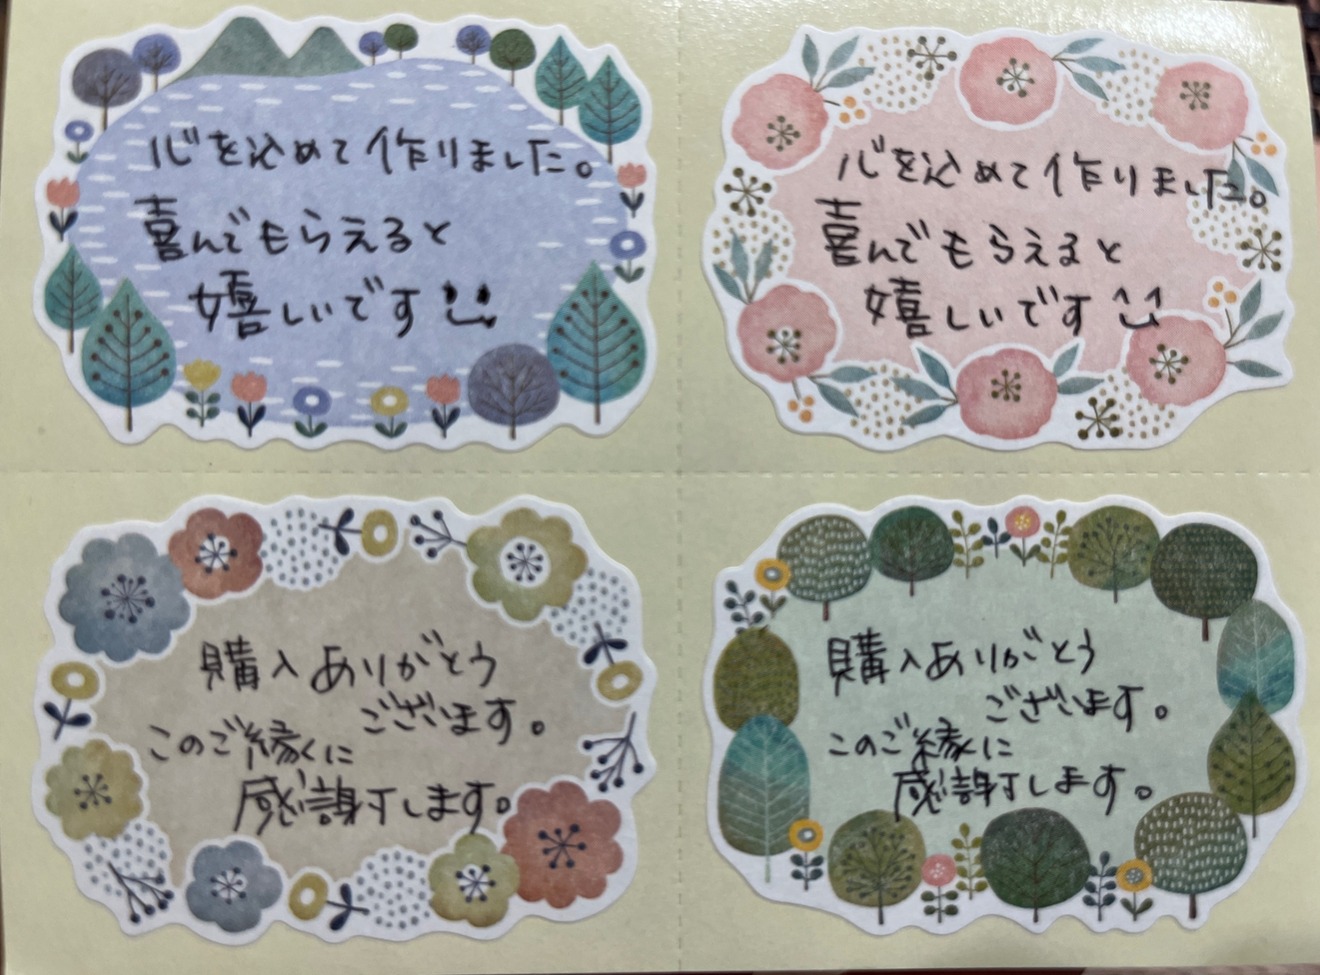 心を込めて作りました。
喜んでもらえると
嬉しいです
心を込めて作りました。
喜んでもらえると
嬉しいです
購入ありがとう
ございます。
このご縁に
感謝します。
購入ありがとう
ございます。
このご縁に
感謝します。